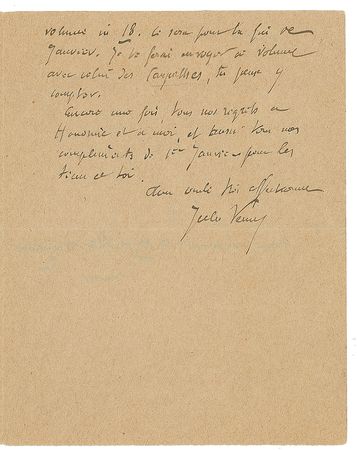 volume in 18. Ce sera pour la fin de
Janvier. Je te ferai envoyer ce volume
avec celui des Carpathes, tu peux y
compter.
Encore une fois, tous nos regrets à
Honorine et à moi, et aussi tous nos
compliments de 1er Janvier pour les
tiens et toi.
Ton
Jules Verne